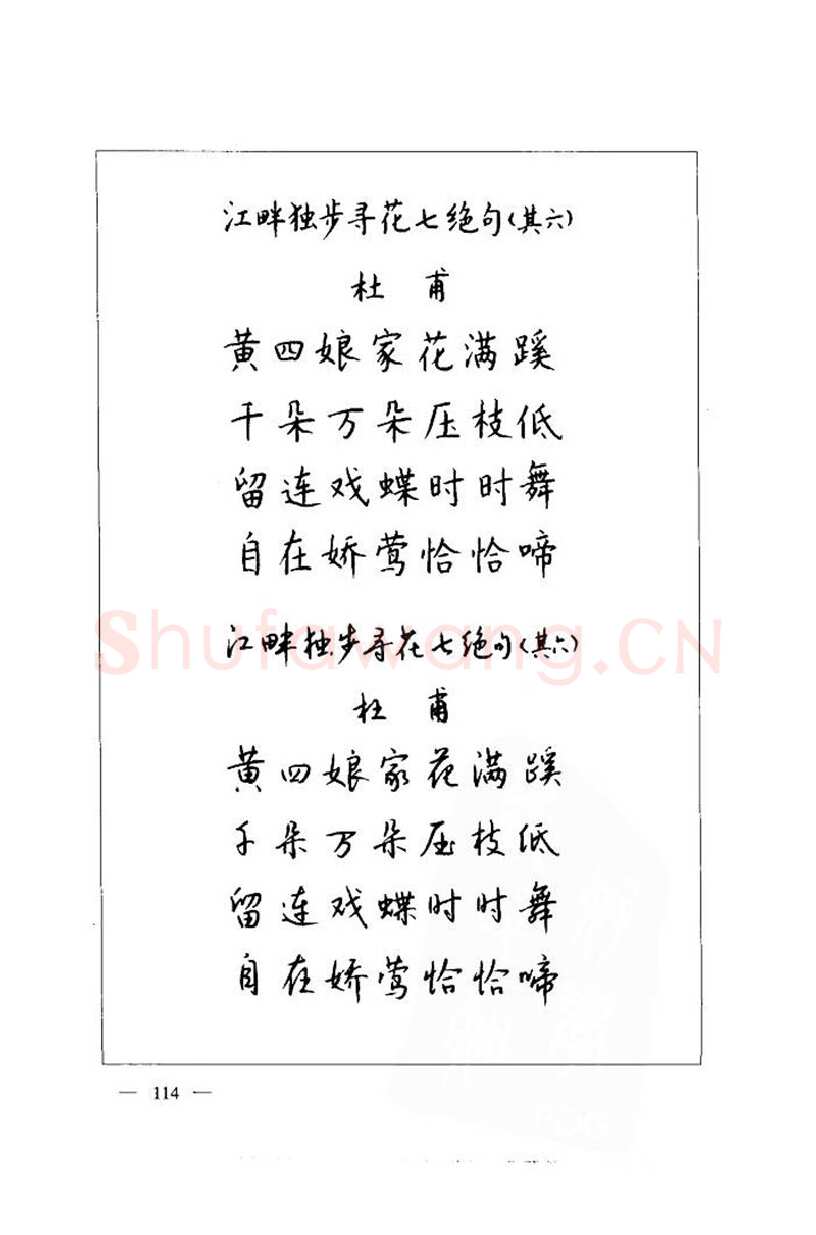 江畔独步寻花七绝句(其六)
杜 甫
黄四娘家花满蹊
千朵万朵压枝低
留连戏蝶时时舞
自在娇莺恰恰啼
江畔独步寻花七绝句(其六)
杜 甫
黄四娘家花满蹊
千朵万朵压枝低
留连戏蝶时时舞
自在娇莺恰恰啼
Shufawang.CN
— 114 —